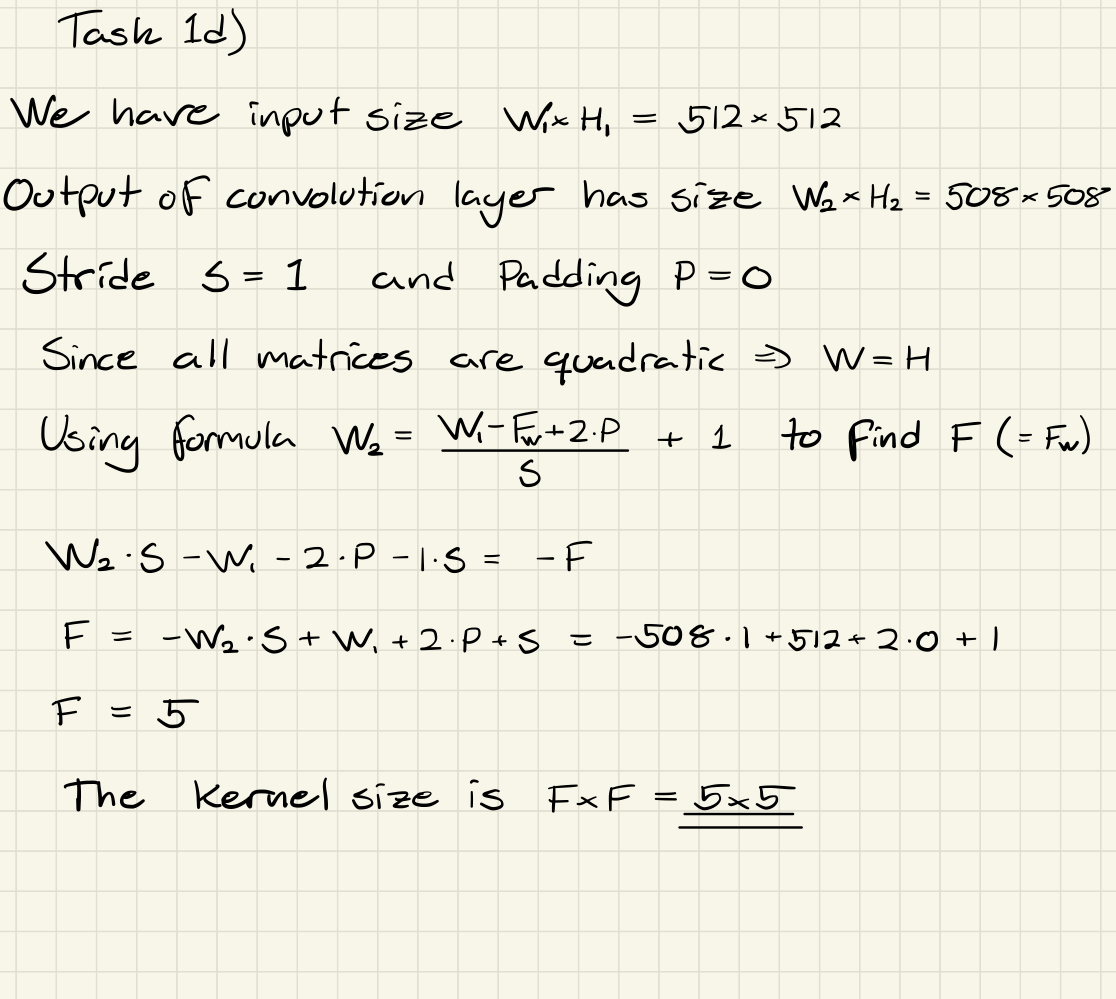 Task 1d)
We have input size W₁×H₁ = 512×512
Output of convolution layer has size W₂×H₂ = 508×508
Stride S = 1 and Padding P = 0
Since all matrices are quadratic ⇒ W = H
Using formula W₂ = (W₁-F_w+2·P)/S + 1 to find F (= F_w)
W₂·S - W₁ - 2·P - 1·S = -F
F = -W₂·S + W₁ + 2·P + S = -508·1 + 512 + 2·0 + 1
F = 5
The kernel size is F×F = 5×5